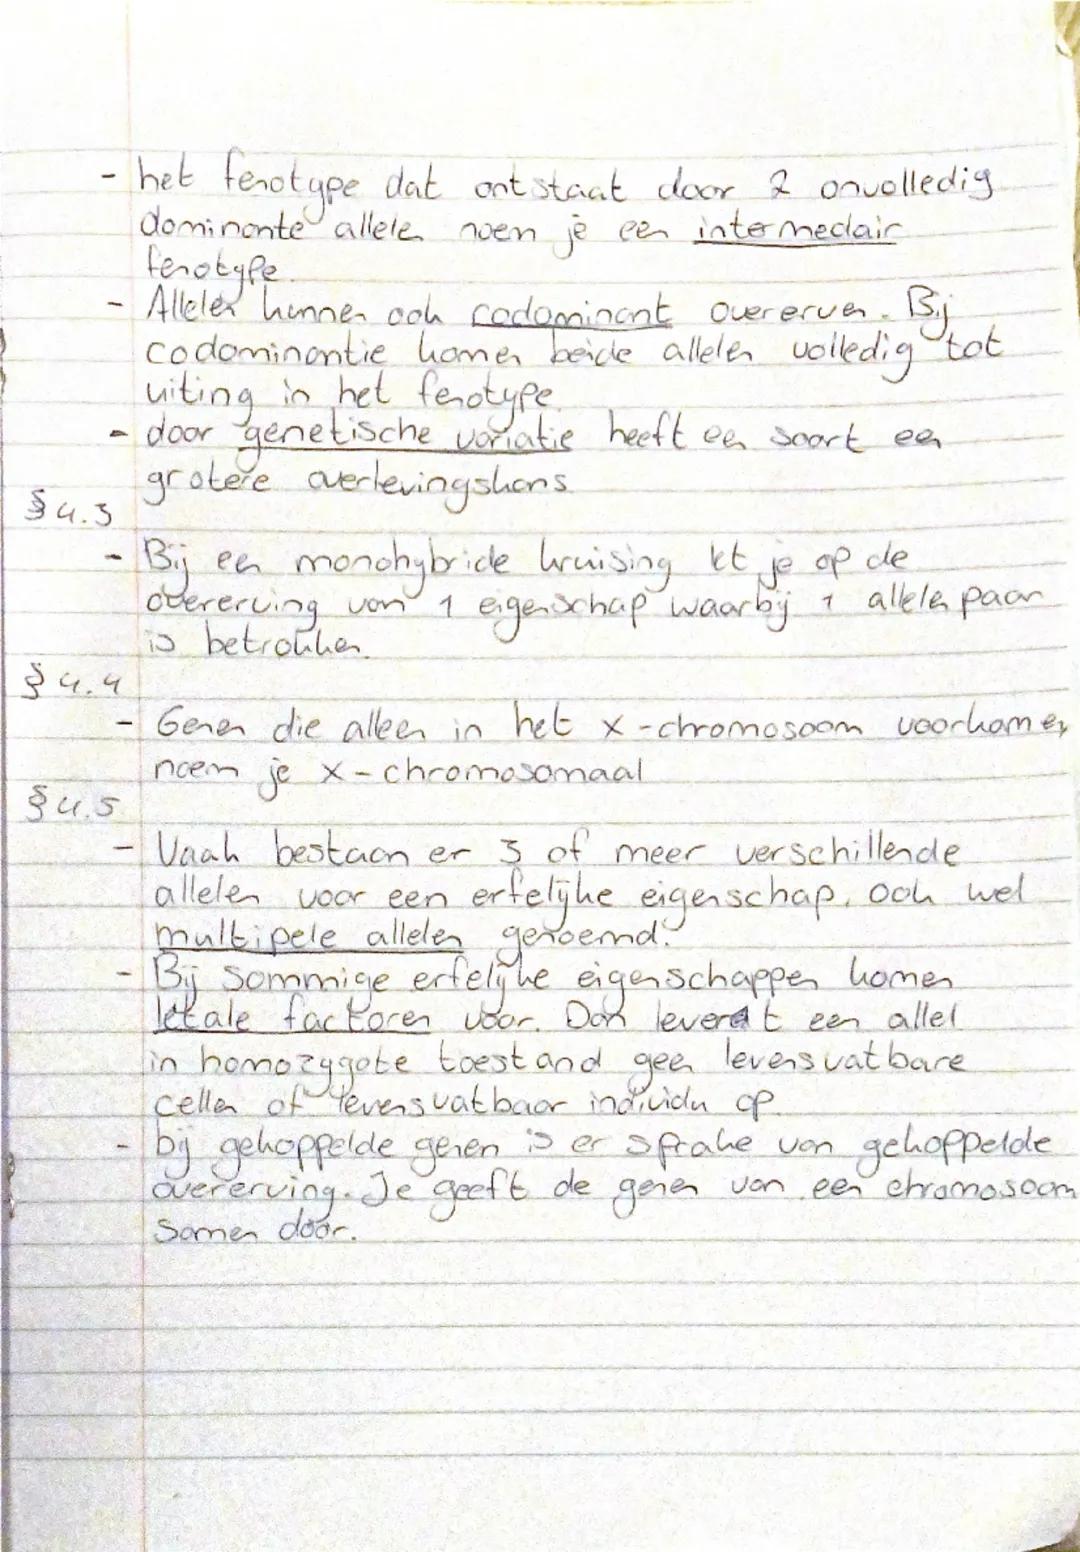 - het fenotype dat ontstaat door 2 onvolledig
dominante allelen noem je een intermediair
fenotype.
- Allelen kunnen ook codominant overerven. Bij
codominantie komen beide allelen volledig tot
uiting in het fenotype.
- door genetische variatie heeft een soort een
grotere overlevingskans.
§4.3
- Bij een monohybride kruising let je op de
overerving van 1 eigenschap waarbij 1 allelen paar
is betrokken.
§4.4
- Genen die alleen in het x-chromosoom voorkomen
noem je x-chromosomaal
§4.5
- Vaak bestaan er 3 of meer verschillende
allelen voor een erfelijke eigenschap, ook wel
multipele allelen genoemd.
- Bij sommige erfelijke eigenschappen komen
letale factoren voor. Dan levert een allel
in homozygote toestand geen levensvatbare
cellen of levensvatbaar individu op.
- bij gekoppelde genen is er sprake van gekoppelde
overerving. Je geeft de genen van een chromosoom
samen door.